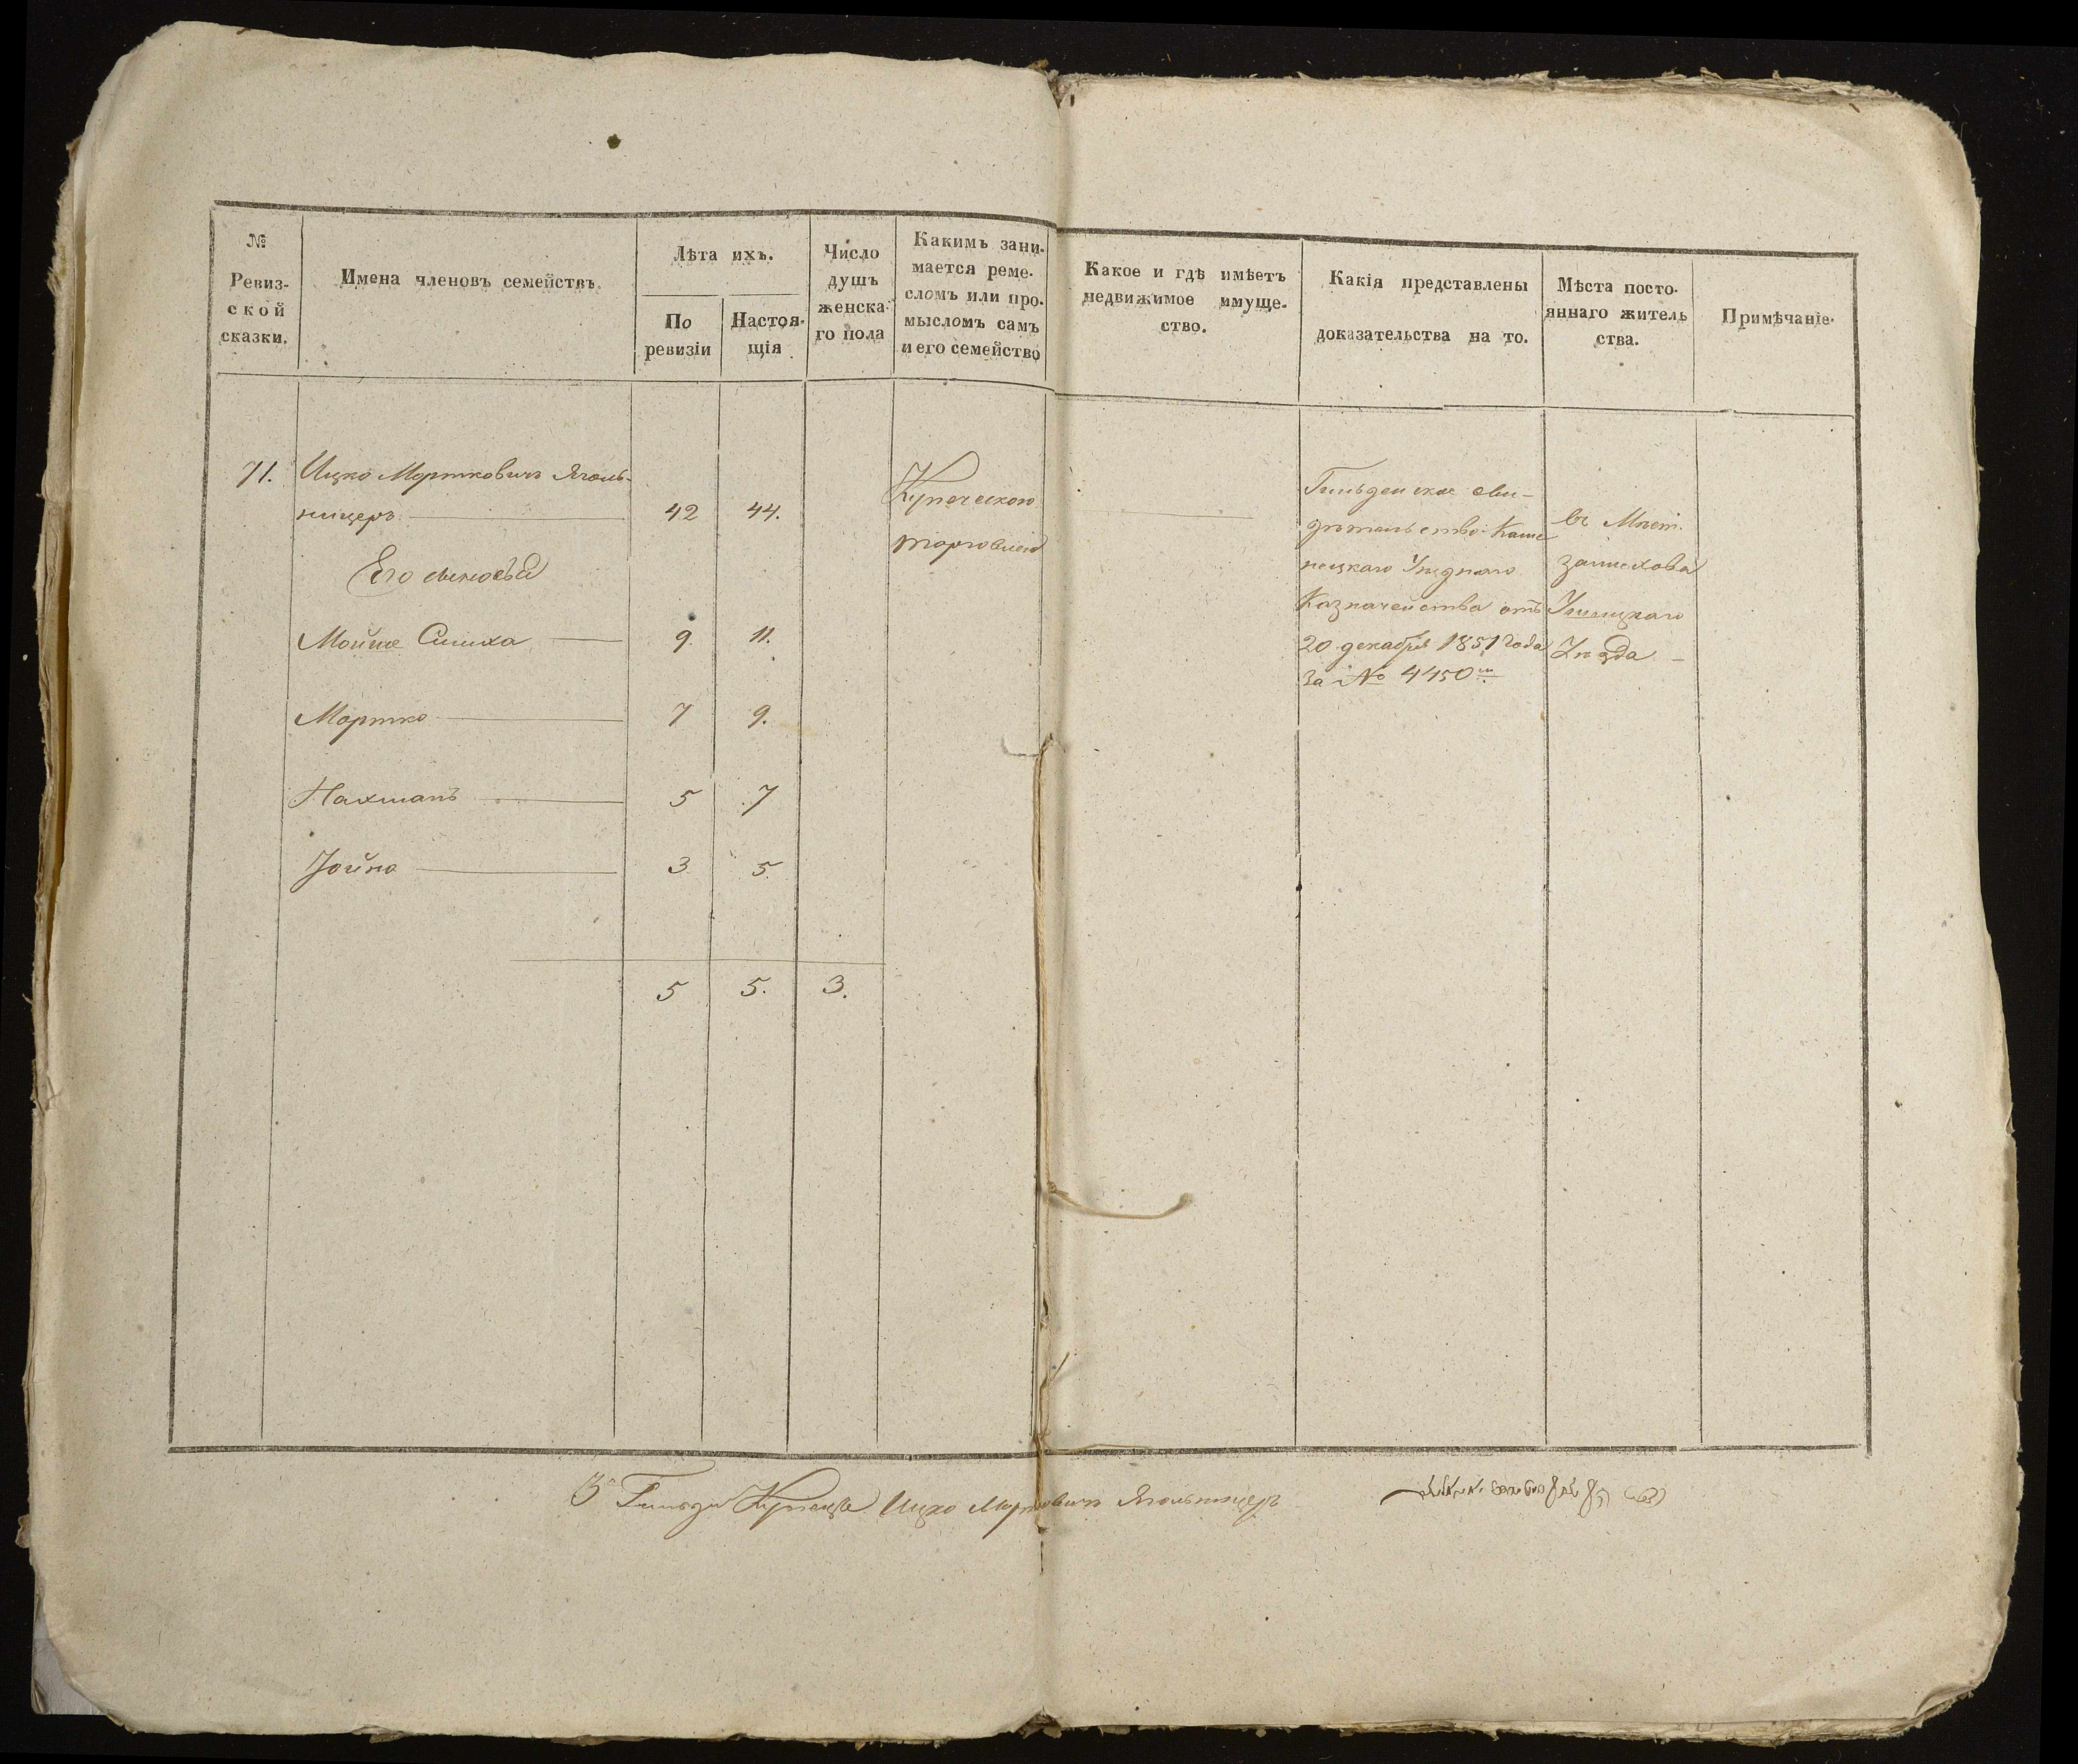 №
Ревиз-
ской
сказки.
Имена членовъ семействъ.
Лѣта ихъ.
По
ревизіи
Настоя-
щія
Число
душъ
женска-
го пола
Какимъ зани-
мается реме-
сломъ или про-
мысломъ самъ
и его семейство
Какое и гдѣ имѣетъ
недвижимое имуще-
ство.
Какія представлены
доказательства на то.
Мѣста посто-
яннаго житель
ства.
Примѣчаніе.
71.
Ицко Мортковичъ Яголь-
ницеръ
42
44.
Купеческою
торговлею
Гильдейское сви-
дѣтельство Каме
нецкаго Уѣзднаго
Казначейства отъ
20 декабря 1851 года
за № 4450
въ Мѣст.
Замехова
Ушицкаго
Уѣзда
Его сыновья
Мойше Симха
9.
11.
Мортко
7
9.
Нахманъ
5
7
Йойна
3
5.
5
5.
3.
3й Гильдіи Купецъ Ицко Мортковичъ Ягольницеръ